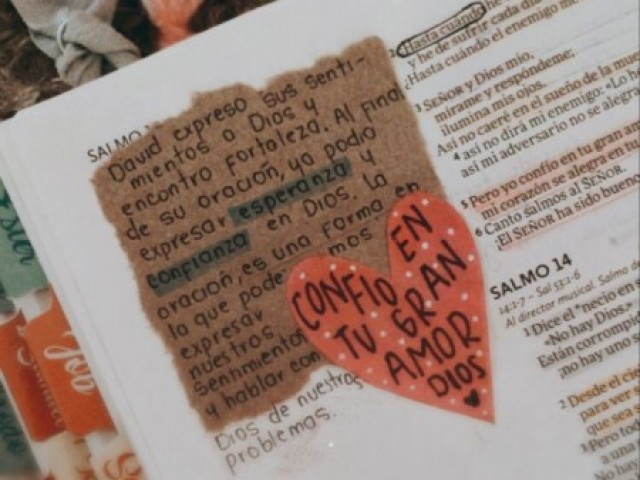 SALMO
David expreso sus senti-
mientos a Dios y
encontro fortaleza. Al final
de su oración, ya podia
expresar esperanza y
confianza en Dios. La
oración, es una forma en
la que pode mos
expresar
nuestros
Senhmientos
y hablar con
Dios de nuestros
problemas.
CONFIO EN
TU GRAN
AMOR
DIOS
Hasta cuándo he
y he de sufrir cada día
¿Hasta cuándo el enemigo me
3 SEÑOR y Dios mío,
mírame y respóndeme:
ilumina mis ojos.
Así no caeré en el sueño de la mue
4 así no dirá mi enemigo: «Lo he
así mi adversario no se alegra
5 Pero yo confío en tu gran am
mi corazón se alegra en tu
6 Canto salmos al SEÑOR.
¡El SEÑOR ha sido bueno
SALMO 14
14:1-7 – Sal 53:1-6
Al director musical. Salmo de
1 Dice el necio en
«No hay Dios.»
Están corrompi
¡no hay uno s
2 Desde el cie
para ver
que sea
3 Pero tod
a una
No hay
Job